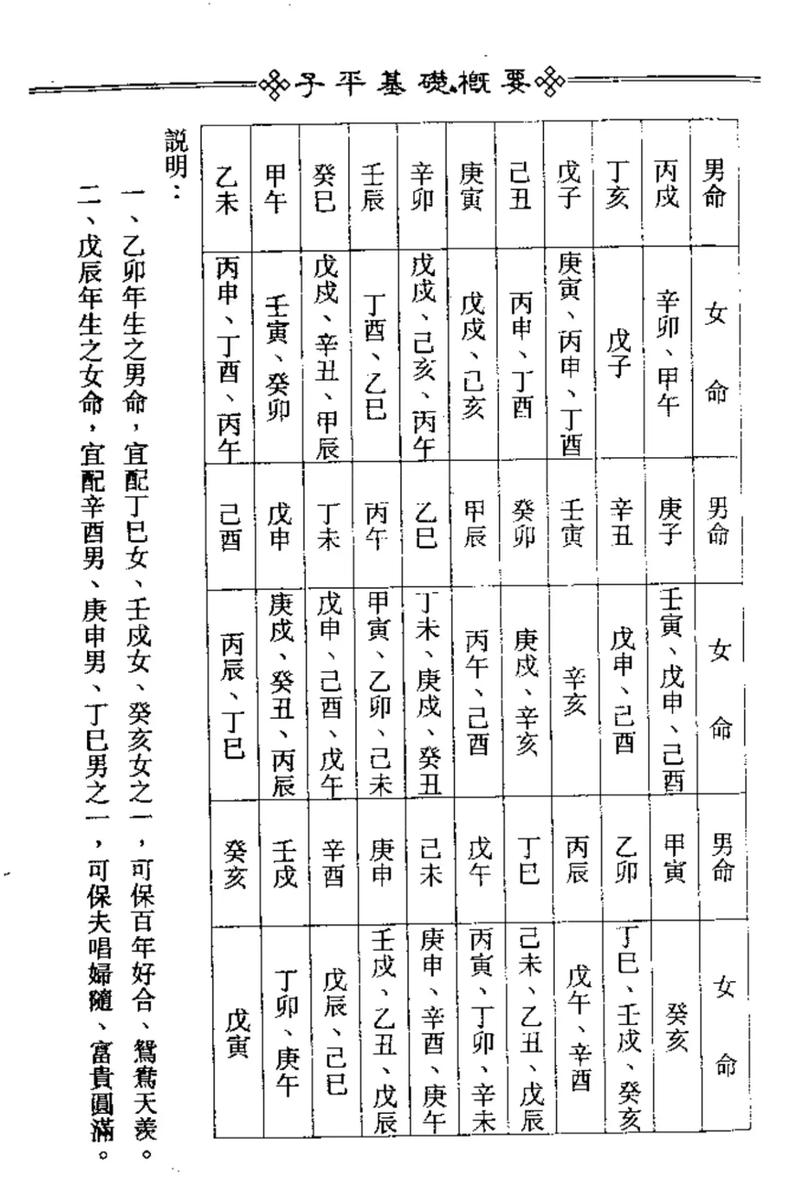 子平基礎概要
男命 女命 男命 女命 男命 女命
丙戌 辛卯、甲午 庚子 壬寅、戊申、己酉 甲寅 癸亥
丁亥 戊子 辛丑 戊申、己酉 乙卯 丁巳、壬戌、癸亥
戊子 庚寅、丙申、丁酉 壬寅 辛亥 丙辰 戊午、辛酉
己丑 丙申、丁酉 癸卯 庚戌、辛亥 丁巳 己未、乙丑、戊辰
庚寅 戊戌、己亥 甲辰 丙午、己酉 戊午 丙寅、丁卯、辛未
辛卯 戊戌、己亥、丙午 乙巳 丁未、庚戌、癸丑 己未 庚申、辛酉、庚午
壬辰 丁酉、乙巳 丙午 甲寅、乙卯、己未 庚申 壬戌、乙丑、戊辰
癸巳 戊戌、辛丑、甲辰 丁未 戊申、己酉、戊午 辛酉 戊辰、己巳
甲午 壬寅、癸卯 戊申 庚戌、癸丑、丙辰 壬戌 丁卯、庚午
乙未 丙申、丁酉、丙午 己酉 丙辰、丁巳 癸亥 戊寅
説明：
一、乙卯年生之男命，宜配丁巳女、壬戌女、癸亥女之一，可保百年好合、鴛鴦天羨。
二、戊辰年生之女命，宜配辛酉男、庚申男、丁巳男之一，可保夫唱婦隨、富貴圓滿。